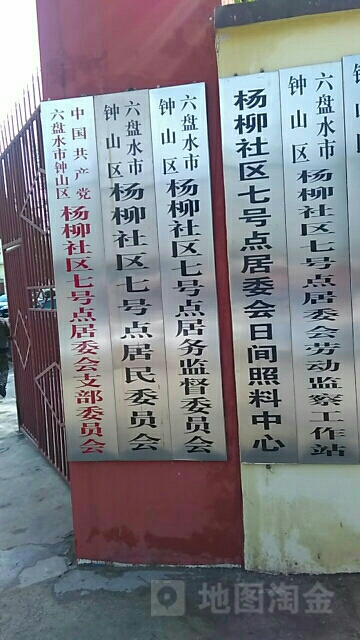 中国共产党
六盘水市钟山区
杨柳社区七号点居委会支部委员会
六盘水市
钟山区
杨柳社区七号点居民委员会
六盘水市
钟山区
杨柳社区七号点居务监督委员会
杨柳社区七号点居委会日间照料中心
六盘水市
钟山区
杨柳社区七号点居委会劳动监察工作站
地图淘金